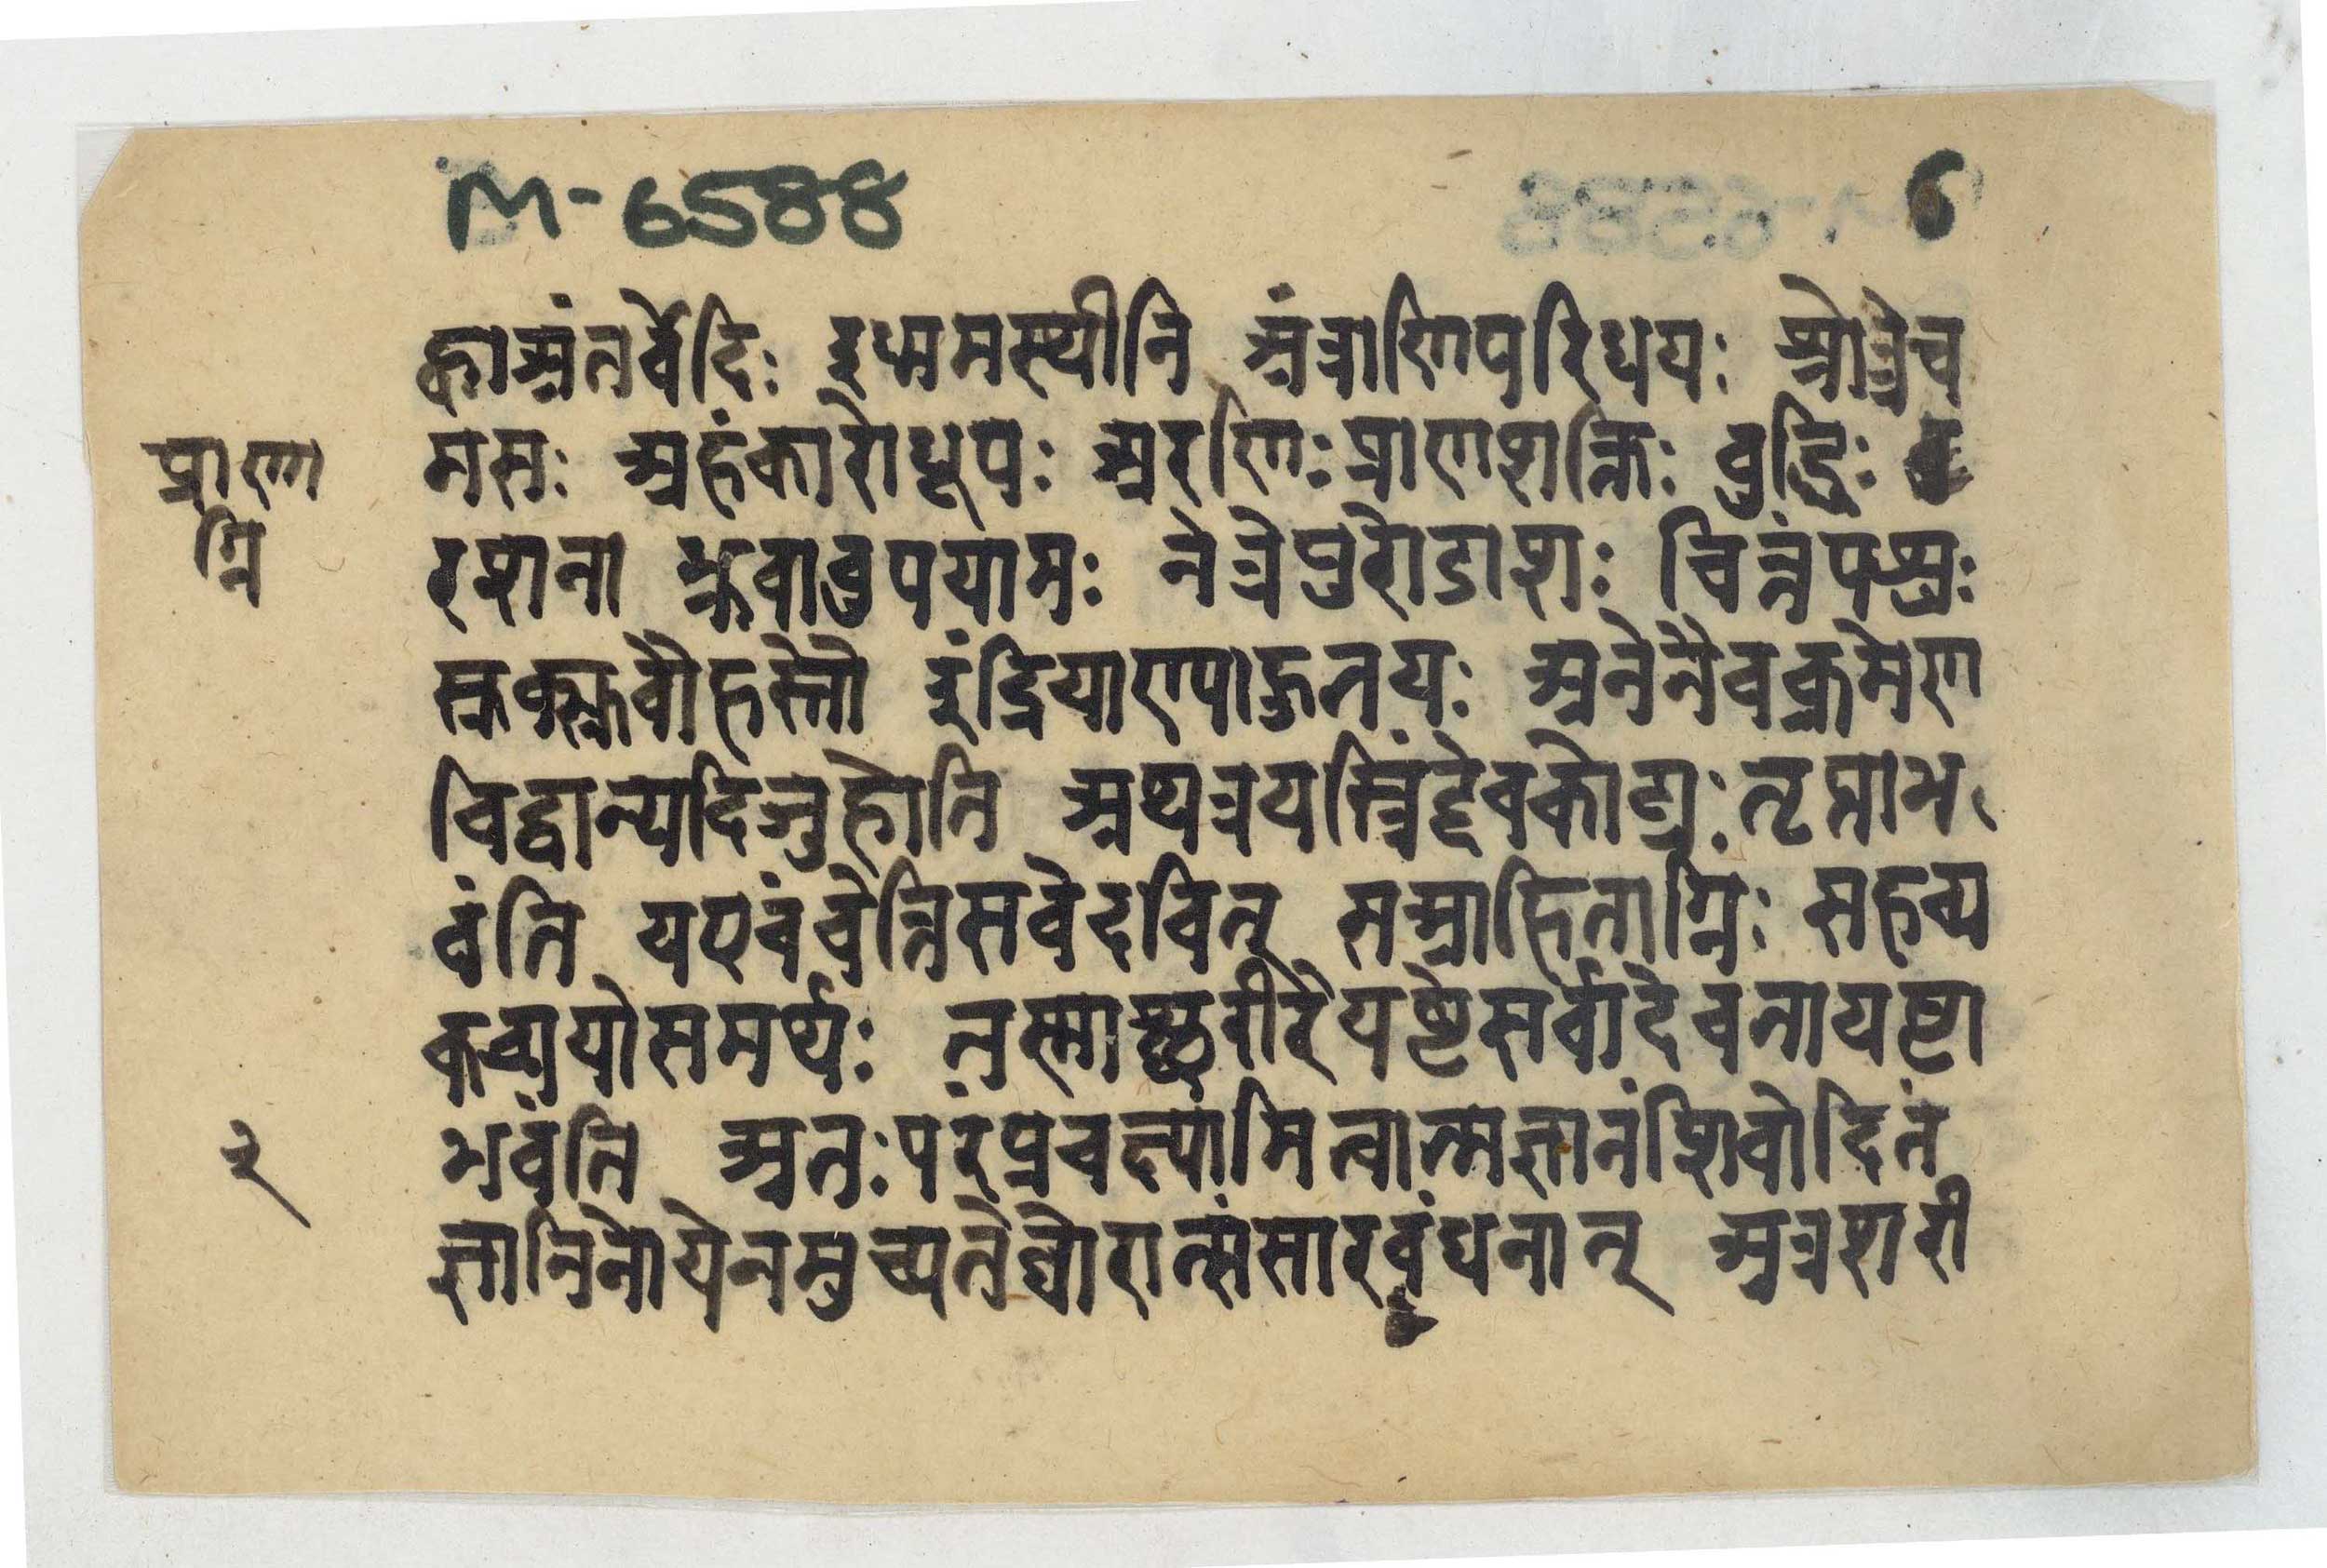 M-6588
6
ह्वाअंतर्वेदिः इध्ममस्थीनि अंत्राणिपरिधयः श्रोत्रेच
मसः अहंकारोधूपः अरणिः प्राणशक्तिः बुद्धिः
रशना भ्रुवावुपयामः नेत्रेपुरोडाशः चित्तंपशुः
स्रुक्स्रुवौहस्तौ इंद्रियाण्याहुतयः अनेनैवक्रमेण
विद्वान्यदिजुहोति अथत्रयस्त्रिंद्देवकोट्यः तृप्ताभ
वंति यएवंवेत्तिसवेदवित् सआहिताग्निः सहव्य
कव्ययोसमर्थः तस्माच्छरीरेयष्टेसर्वादेवतायष्टा
भवंति अतःपरंप्रवक्ष्यामित्वात्मज्ञानंशिवोदितं
ज्ञानिनोयेनमुच्यतेघोरात्संसारबंधनात् अत्रशरी
प्राणा
ग्नि
२